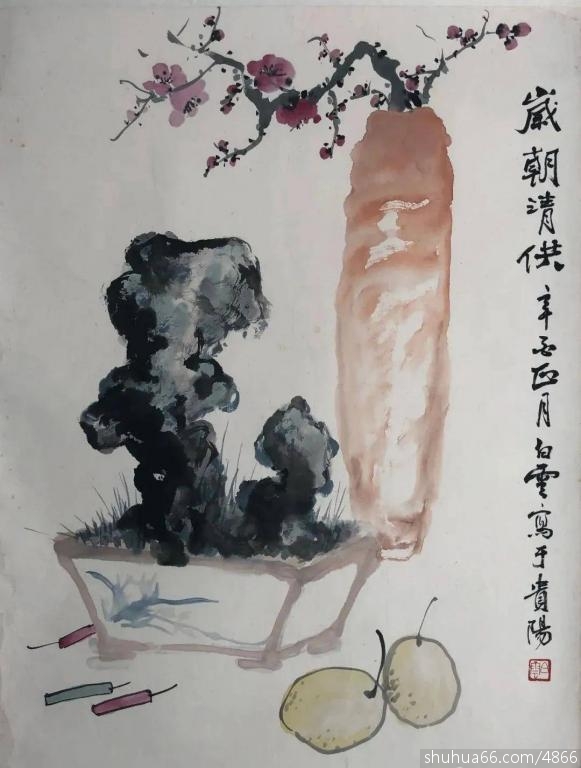 嵗朝清供 辛酉正月白雲寫于貴陽
shuhua66.com/4866